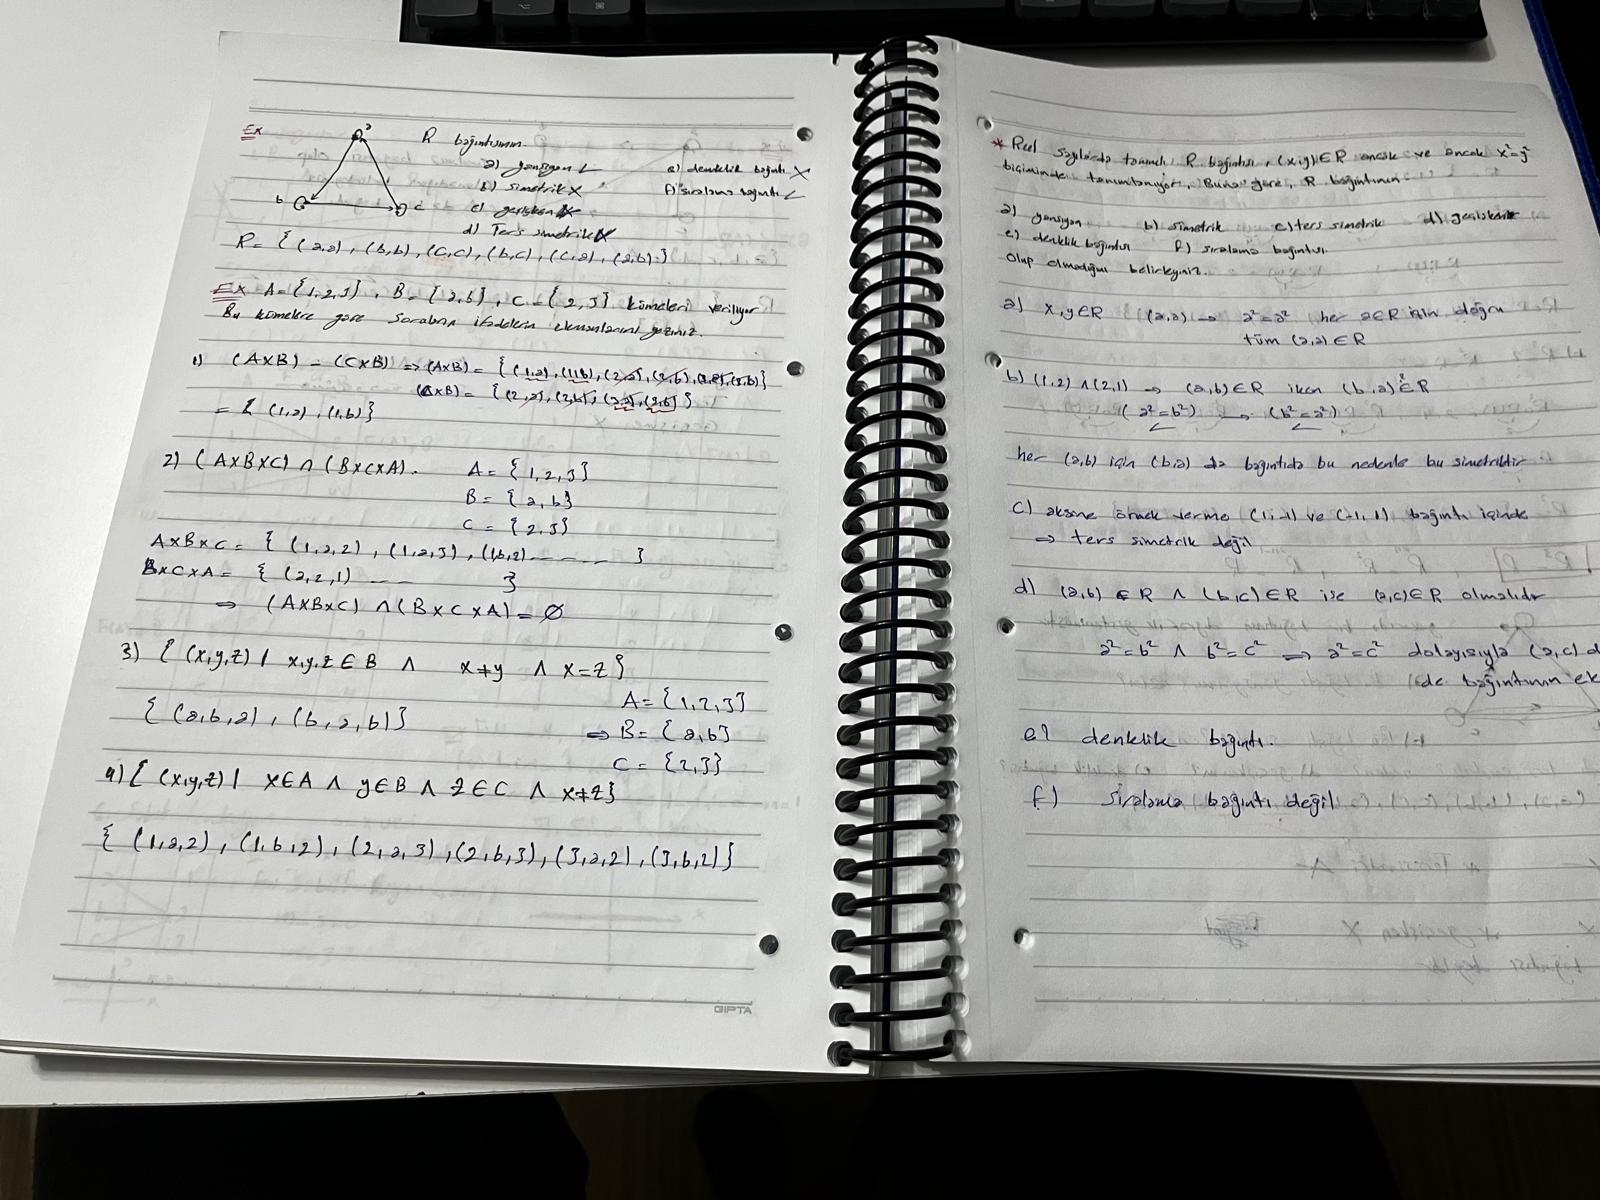 Ex
a
b
c
R bağıntısının
a) yansıyan ✓
b) simetrik X
c) geçişken X
d) Ters simetrik
e) denklik bağıntı X
f) sıralama bağıntı ✓
R = { (a,a), (b,b), (c,c), (b,c), (c,a), (a,b) }
Ex A = {1,2,3}, B = {a,b}, C = {2,3} kümeleri veriliyor
Bu kümelere göre sorulan ifadelerin elemanlarını yazınız.
1) (AxB) - (CxB) => (AxB) = { (1,a), (1,b), (2,a), (2,b), (3,a), (3,b) }
(CxB) = { (2,a), (2,b), (3,a), (3,b) }
= { (1,a), (1,b) }
2) (AxBxC) ∩ (BxCxA). A = {1,2,3}
B = {a,b}
C = {2,3}
AxBxC = { (1,a,2), (1,a,3), (1,b,2) - - - - - - }
BxCxA = { (a,2,1) - - - }
=> (AxBxC) ∩ (BxCxA) = ∅
3) { (x,y,z) | x,y,z ∈ B ∧ x≠y ∧ x=z }
{ (a,b,a), (b,a,b) }
A = {1,2,3}
=> B = {a,b}
C = {2,3}
4) { (x,y,z) | x∈A ∧ y∈B ∧ z∈C ∧ x≠z }
{ (1,a,2), (1,b,2), (2,a,3), (2,b,3), (3,a,2), (3,b,2) }
GIPTA
* Reel sayılarda tanımlı R bağıntısı, (x,y)∈R ancak ve ancak x²=y²
biçiminde tanımlanıyor, Buna göre, R bağıntının
a) yansıyan b) simetrik c) ters simetrik d) geçişken
e) denklik bağıntısı f) sıralama bağıntısı
Olup olmadığını belirleyiniz.
a) x,y∈R (a,a) → a²=a² her a∈R için doğru
tüm (a,a) ∈ R
b) (1,2) ∧ (2,1) → (a,b)∈R iken (b,a) ∈? R
(a²=b²) → (b²=a²)
✓ ✓
her (a,b) için (b,a) da bağıntıda bu nedenle bu simetriktir
c) aksine örnek verme (1,-1) ve (-1,1) bağıntı içinde
=> ters simetrik değil
d) (a,b) ∈ R ∧ (b,c) ∈ R ise (a,c)∈R olmalıdır
a²=b² ∧ b²=c² => a²=c² dolayısıyla (a,c) d
de bağıntının ek
e) denklik bağıntı.
f) sıralama bağıntı değil